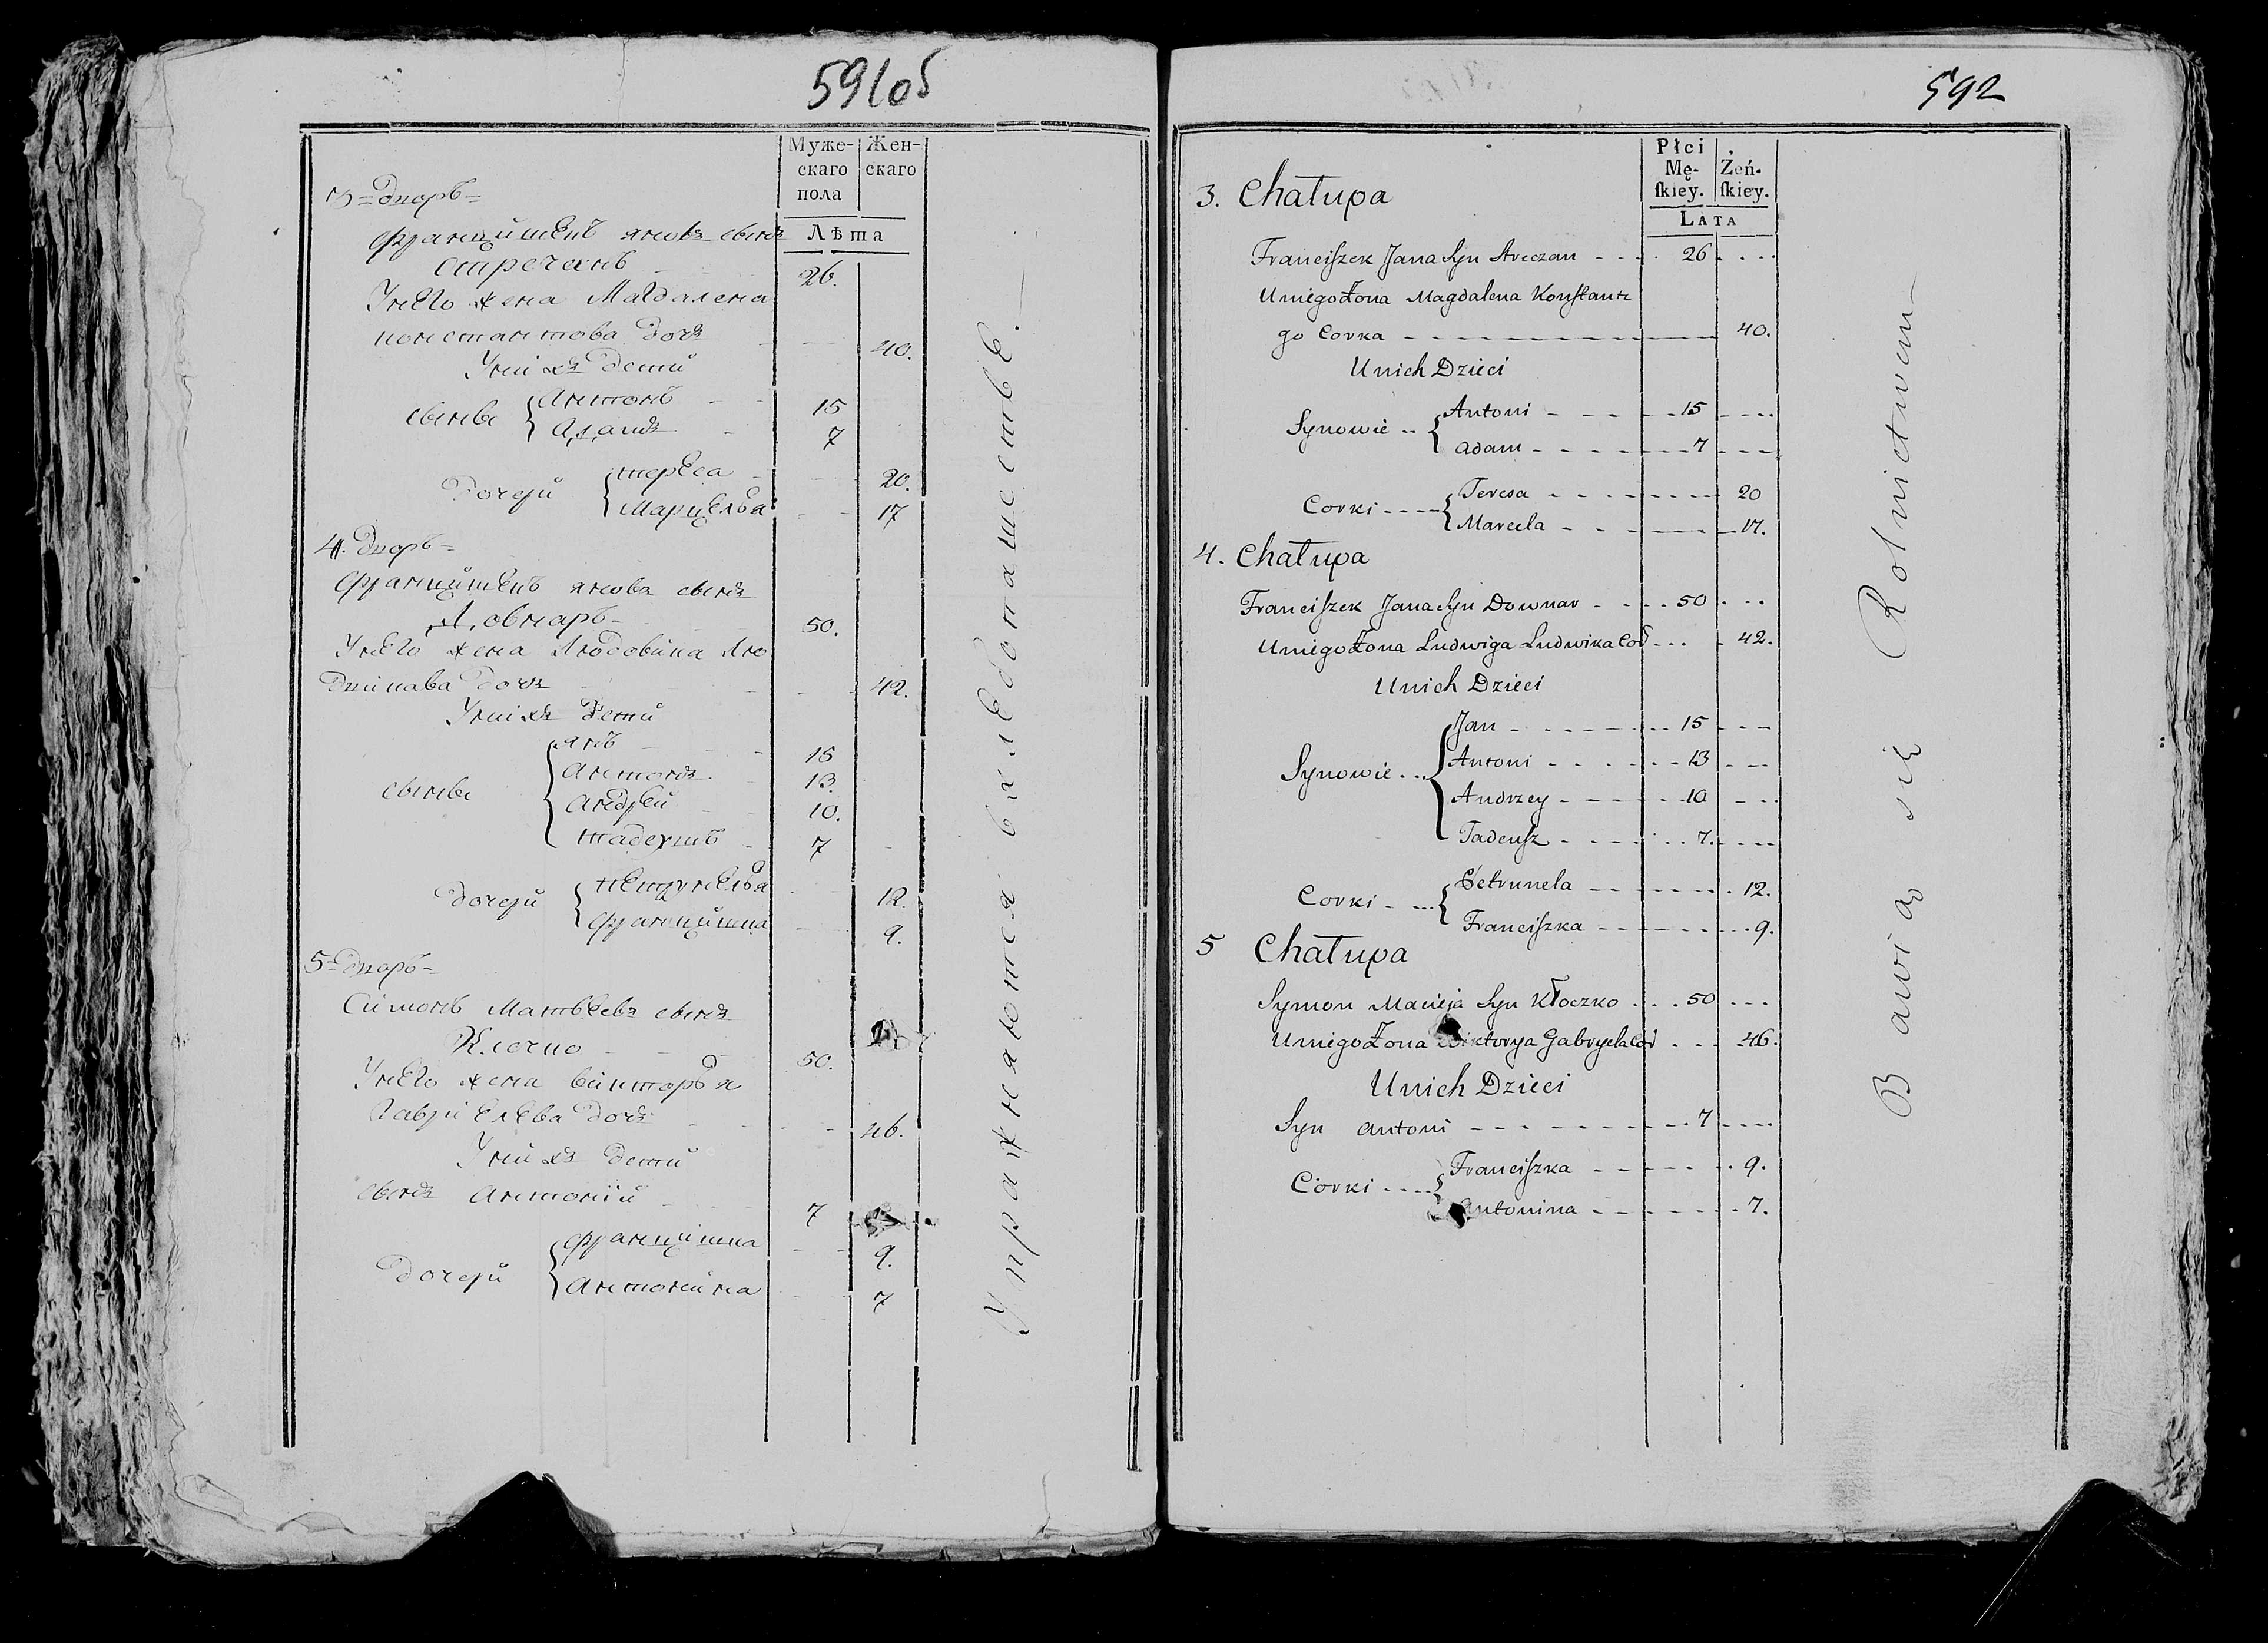 591об
Муже-
скаго
пола
Жен-
скаго
Лѣта
3 = Дворъ =
Францишекъ яновъ сынъ
Стречанъ 26.
У него жена Магдалена
константова дочь 40.
У нихъ дети
сынве Антонъ 15
Адамъ 7
дочери тереса 20.
Марцелья 17
4. Дворъ =
Францишекъ яновъ сынъ
Довнаръ 50.
У него жена Людовика Лю
двикава дочь 42.
У нихъ дети
янъ 15
сынве Антонъ 13.
Андрей 10.
тадеушъ 7
дочери петрунелья 12.
Францишка 9.
5 = Дворъ =
Симонъ Матвеевъ сынъ
Клочко 50.
У него жена викторья
Гавриелева дочь 46.
У нихъ дети
сынъ Антоній 7
дочери Францишка 9.
Антонина 7
Упражняются въ хлебопашестве.
592
Płci
Mę-
ſkiey.
Żeń-
ſkiey.
LATA
3. Chałupa
Franciſzek Jana Syn Streczan 26
U niego Żona Magdalena Konſtante
go Corka 40.
U nich Dzieci
Synowie Antoni 15
Adam 7
Corki Teresa 20
Marcela 17.
4. Chałupa
Franciſzek Jana Syn Downar 50
U niego Żona Ludwiga Ludwika Cor 42.
U nich Dzieci
Jan 15
Synowie Antoni 13
Andrzey 10
Tadeuſz 7.
Corki Petrunela 12.
Franciſzka 9.
5 Chałupa
Symon Macieja Syn Kłoczko 50
U niego Żona Wiktorya Gabryela Cor 46.
U nich Dzieci
Syn Antoni 7
Corki Franciſzka 9.
Antonina 7.
Bawią się Rolnictwem